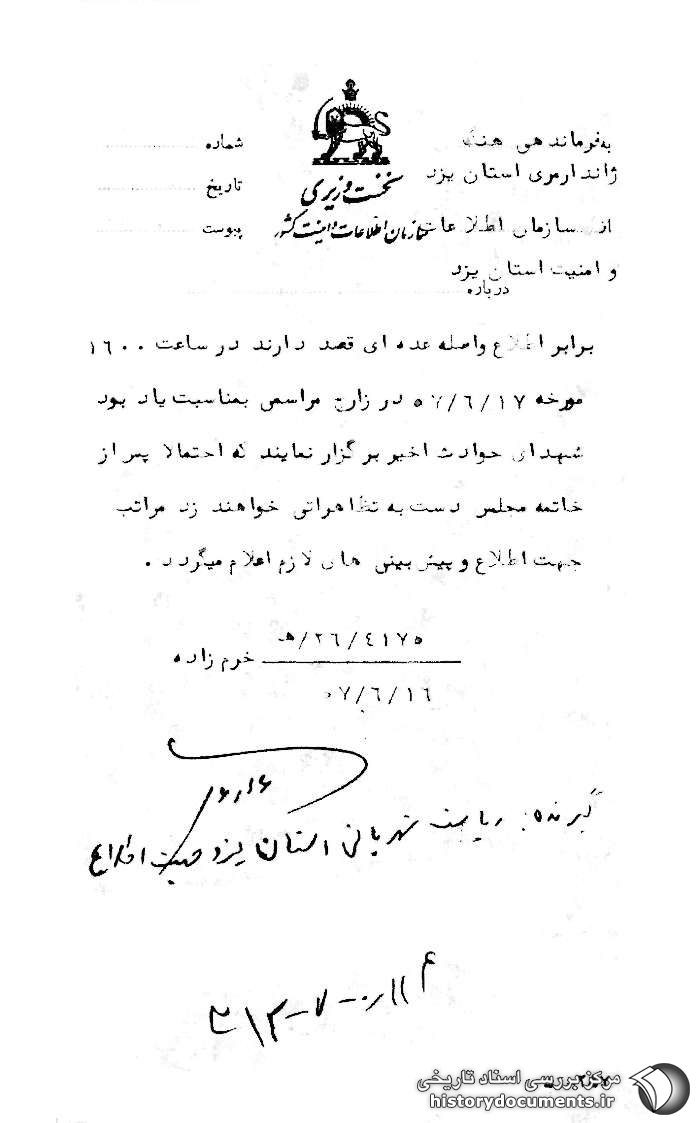 به فرماندهی هنگ
ژاندارمری استان یزد
از سازمان اطلاعات
و امنیت استان یزد
درباره
نخست وزیری
سازمان اطلاعات و امنیت کشور
شماره
تاریخ
پیوست
برابر اطلاع واصله عده ای قصد دارند در ساعت ۱۶۰۰
مورخه ۵۷/۶/۱۷ در زارچ مراسمی بمناسبت یاد بود
شهدای حوادث اخیر برگزار نمایند که احتمالا پس از
خاتمه مجلس دست به تظاهراتی خواهند زد مراتب
جهت اطلاع و پیش بینی های لازم اعلام میگردد .
۲۶/۴۱۷۵/ه
خرم زاده
۵۷/۶/۱۶
گیرنده: ریاست شهربانی استان یزد جهت اطلاع
مرکز بررسی اسناد تاریخی
historydocuments.ir